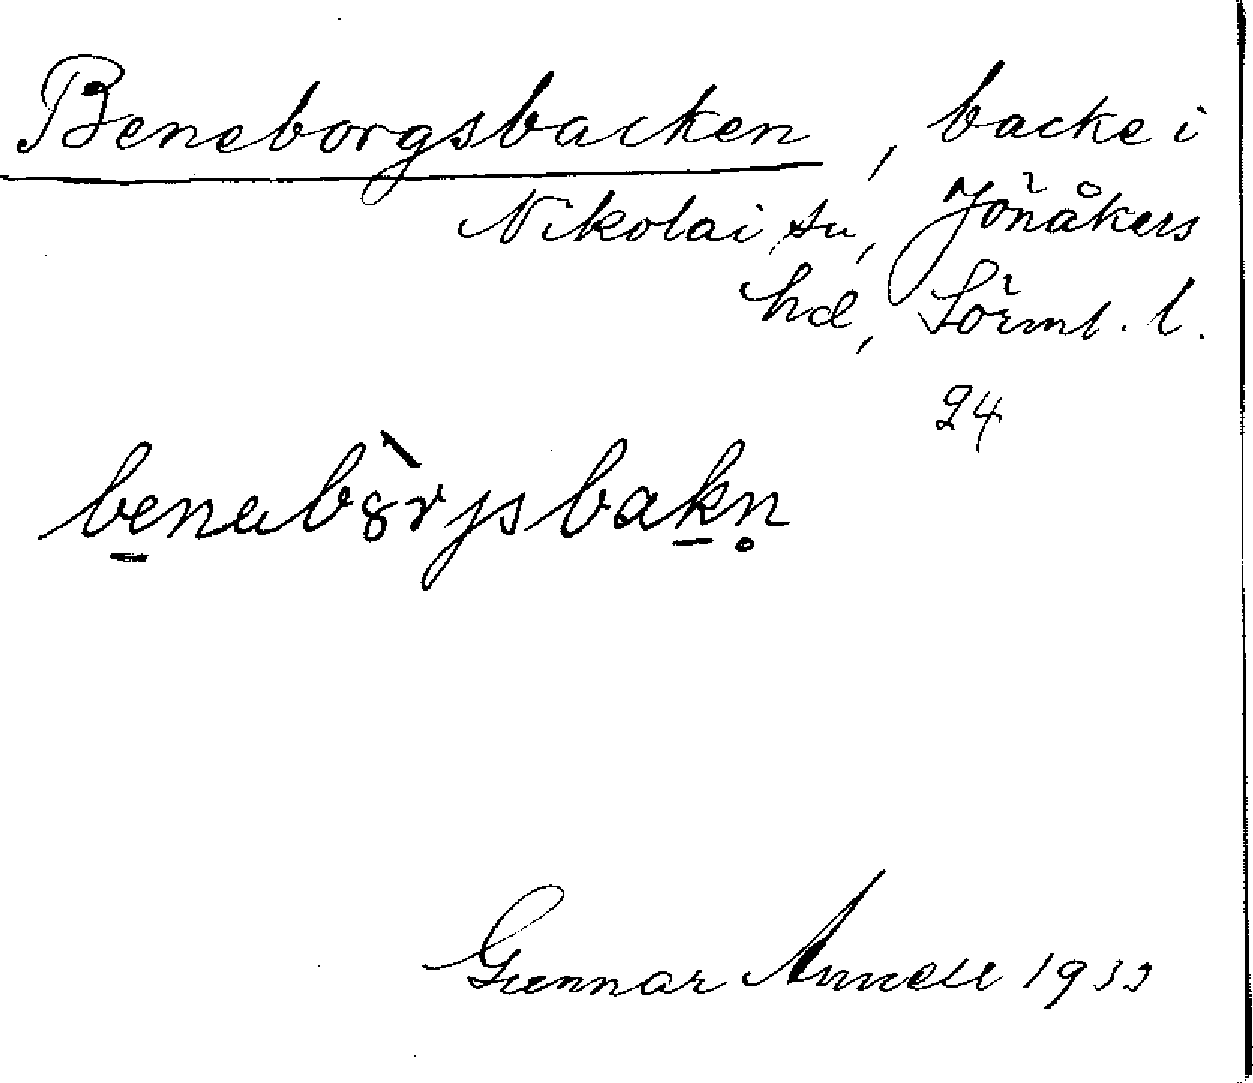 Beneborgsbacken, backe i
Nikolai sn, Jönåkers
hd, Sörml. l.
24
benabȣ̀rjsbakn̥
Gunnar Annell 1933